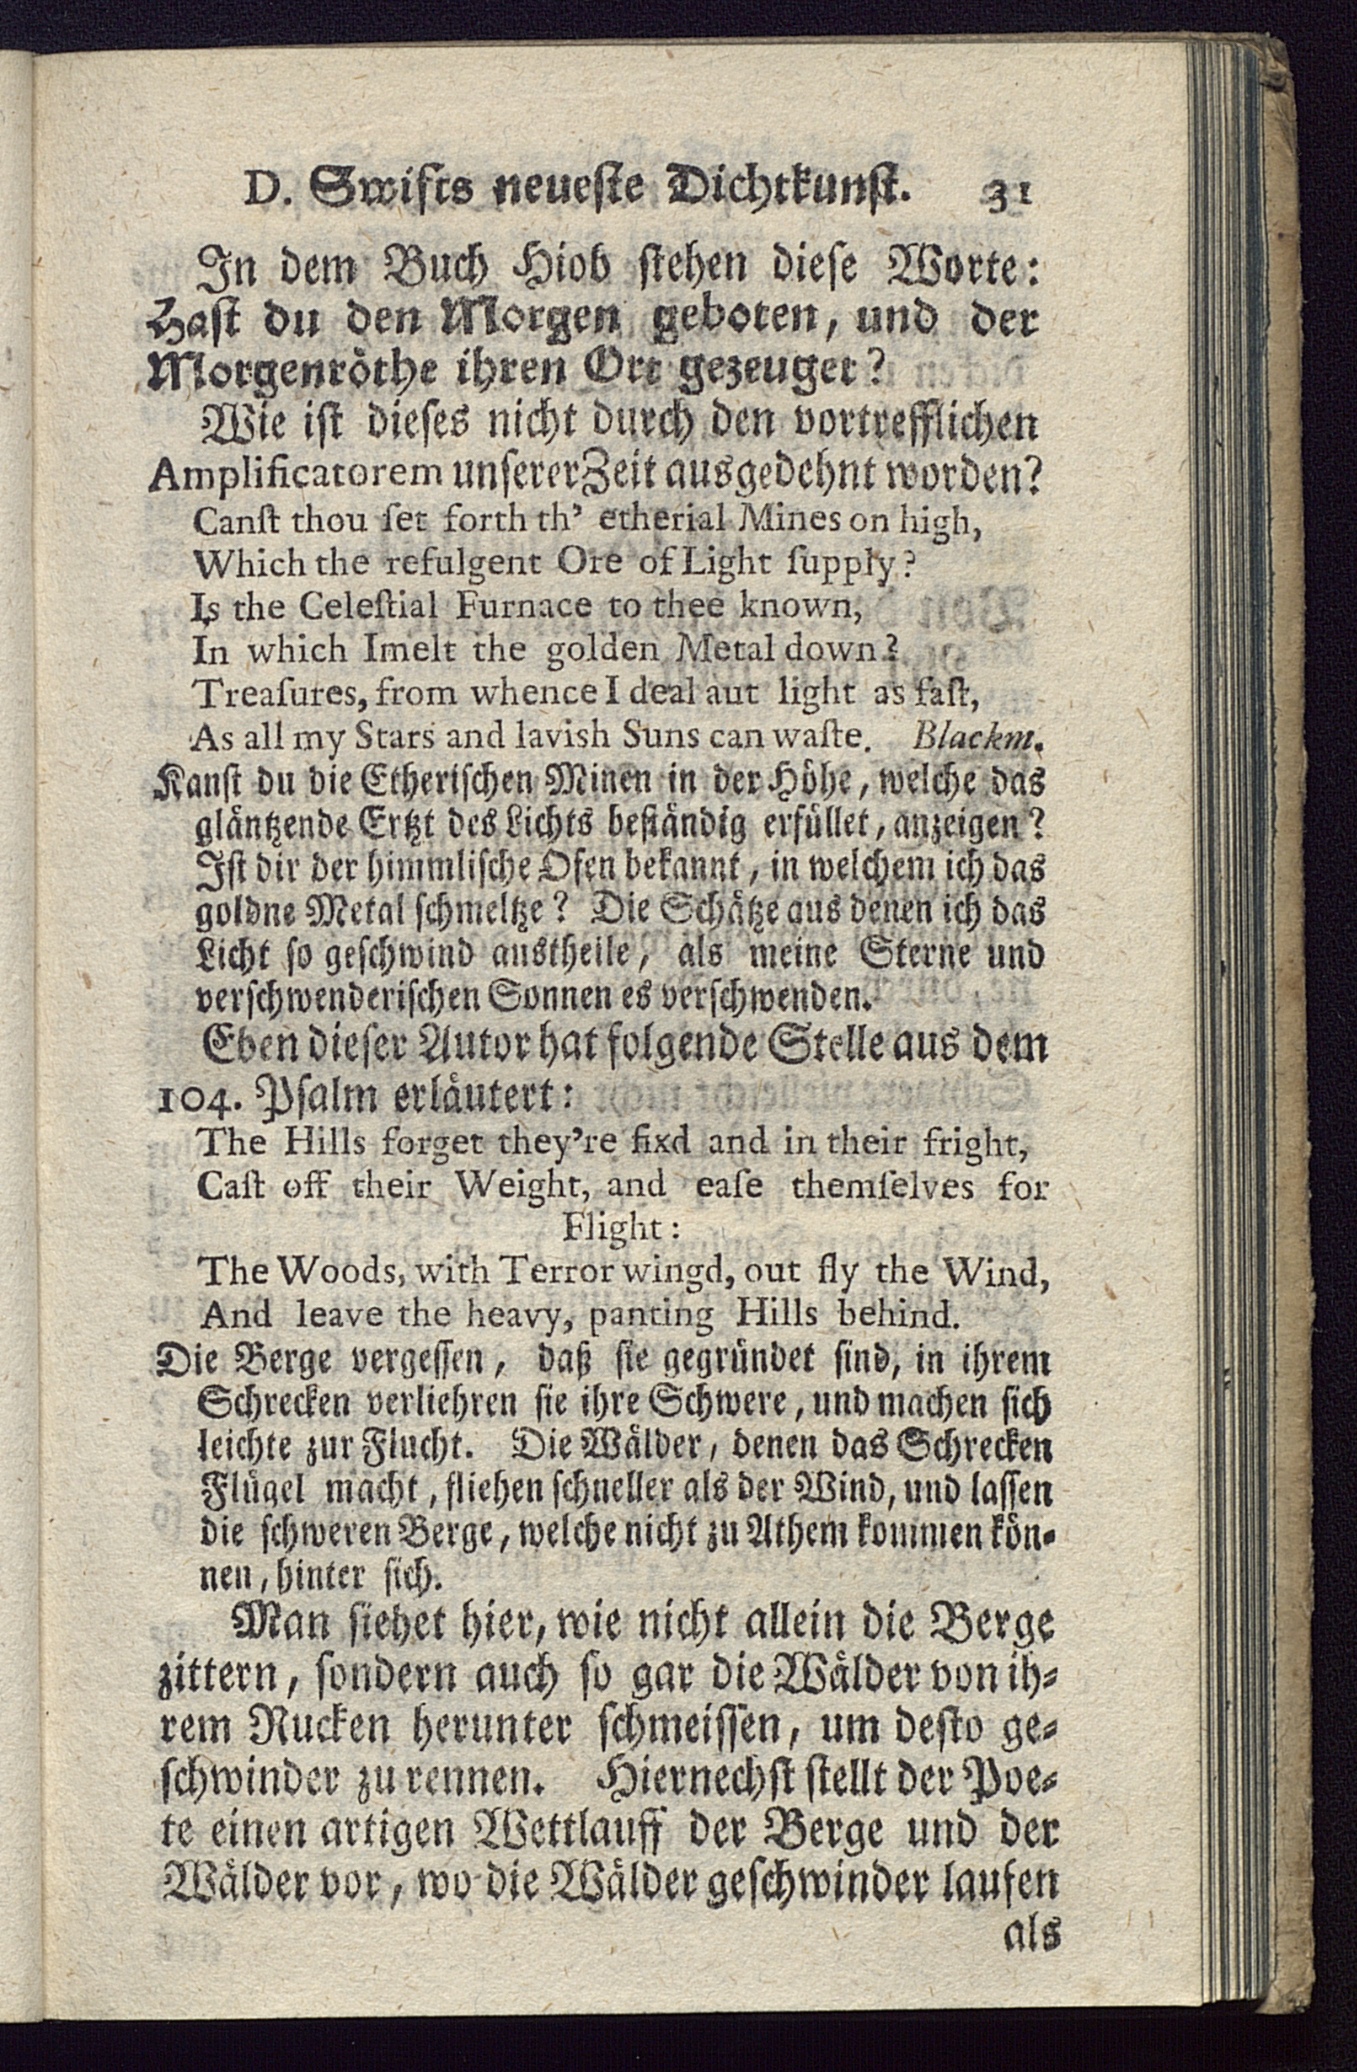 D. Swifts neueste Dichtkunst. 31
In dem Buch Hiob stehen diese Worte:
Hast du den Morgen geboten, und der
Morgenröthe ihren Ort gezeuget?
Wie ist dieses nicht durch den vortrefflichen
Amplificatorem unserer Zeit ausgedehnt worden?
Canſt thou ſet forth th' etherial Mines on high,
Which the refulgent Ore of Light ſupply?
Is the Celeſtial Furnace to thee known,
In which Imelt the golden Metal down?
Treaſures, from whence I deal aut light as faſt,
As all my Stars and lavish Suns can waſte. Blackm.
Kanst du die Etherischen Minen in der Höhe, welche das
gläntzende Ertzt des Lichts beständig erfüllet, anzeigen?
Ist dir der himmlische Ofen bekannt, in welchem ich das
goldne Metal schmeltze? Die Schätze aus denen ich das
Licht so geschwind austheile, als meine Sterne und
verschwenderischen Sonnen es verschwenden.
Eben dieser Autor hat folgende Stelle aus dem
104. Psalm erläutert:
The Hills forget they're fixd and in their fright,
Caſt off their Weight, and eaſe themſelves for
Flight:
The Woods, with Terror wingd, out fly the Wind,
And leave the heavy, panting Hills behind.
Die Berge vergessen, daß sie gegründet sind, in ihrem
Schrecken verliehren sie ihre Schwere, und machen sich
leichte zur Flucht. Die Wälder, denen das Schrecken
Flügel macht, fliehen schneller als der Wind, und lassen
die schweren Berge, welche nicht zu Athem kommen kön-
nen, hinter sich.
Man siehet hier, wie nicht allein die Berge
zittern, sondern auch so gar die Wälder von ih-
rem Rucken herunter schmeissen, um desto ge-
schwinder zu rennen. Hiernechst stellt der Poe-
te einen artigen Wettlauff der Berge und der
Wälder vor, wo die Wälder geschwinder laufen
als